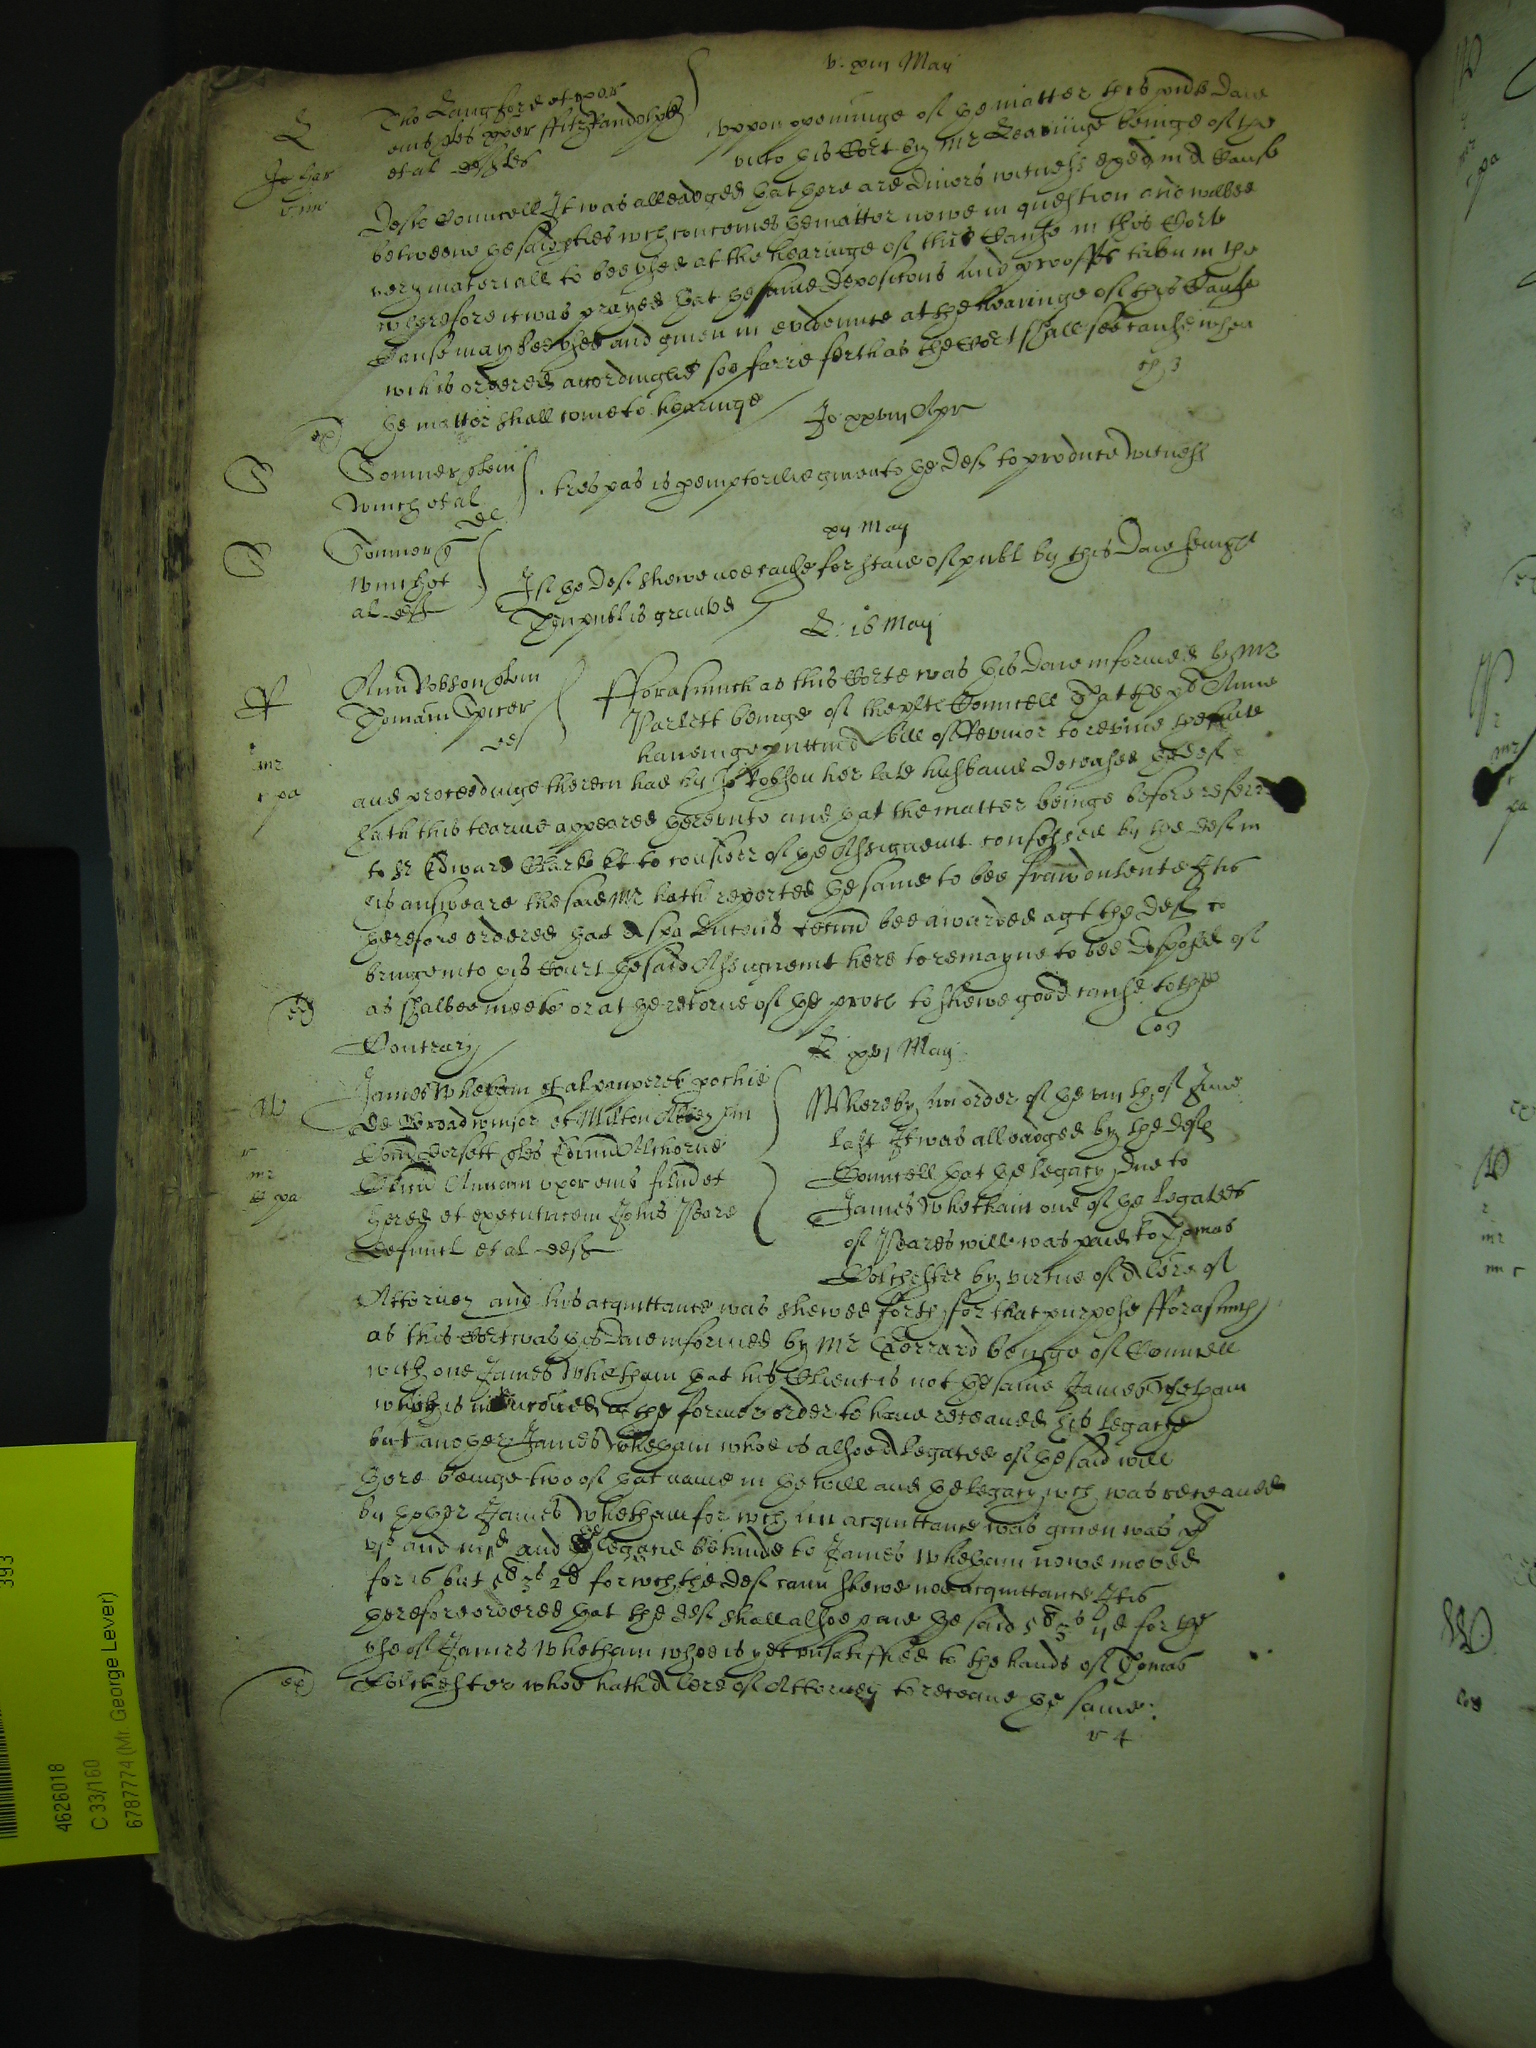 v. xiij May
L Tho Langforde et uxor
eius ples xpofer ffitzRandolphe
et al defts
Uppon openinge of the matter this pnte Daie
unto this Cort by Mr beinge of the
Defts Councell It was alleadged that there are divers witness exed in a Cause
betweene the said pties wch concernes the matter nowe in question and wilbee
very materiall to bee used at the hearinge of this Cause in this Cort
wherefore it was prayed that the same depositons and prooffes taken in the
Cause may bee used and given in evidennce at the hearinge of this Cause
wch is ordered accordinglie soe farre forth as the Cort shall see cause when
the matter shall come to hearinge
Jo xxviij Apr
S Somner plein
Winch et al
de
. tres pas is pemptorilie given to the Deft to produce witness
xij May
S Somner
Winch et
al deft
If the Deft shewe noe cause for staie of publ by this Daie sennight
Then publ is graunted
L: 16 May
Ann Robson plein
Thomam Spicer
def
Fforasmuch as this Corte was this Daie informed by Mr
beinge of the plts Councell That the pl Anne
haveinge puttin a bill of Revivor to revive the suite
and proceedinge therein had by Jo Robson her late husband deceased the deft
hath this tearme appeared thereunto and that the matter beinge before referr
to Sr Edward Clark kt to consider of the Assignemt confessed by the deft in
his answeare the said Mr hath reported the same to bee frawdulente It is
therefore ordered that a spa Ducens tecum bee awarded agt the Deft to
bringe into this Court the said Assignemt here to remayne to bee disposed of
as shalbee meete or at the retorne of the proces to shewe good cause to the
Contrary
L xvj May
W James Whetham et al pauperes pochie
de Broadwinsor et Milton Abbey in
Com Dorsett ples Edmund
Annam uxor eius filiam et
hered et executricem Johis
defunct et al deft
Whereby an order of the of June
last It was alleadged by the Defts
Councell that the legacy due to
James Whetham one of the legatees
of will was paid to Thomas
Colchester by virtue of a lere of
Attorney and his acquittance was shewed forth for that purpose fforasmuch
as this Cort was this Daie informed by Mr Gerrard beinge of Councell
with one James Whetham that his Clyent is not the same James Whetham
which is in the former order to have receaved his legacye
but another James Whetham whoe is alsoe a legatee of the said will
there beinge two of that name in the will and the legacy wch was receaved
by thother James Whetham for wch an acquittance was given was
and and the legacie behinde to James Whetham nowe moved
for is but 5 3s 2d for wch the Deft cann shewe noe acquittance It is
therefore ordered that the deft shall alsoe paie the said 5 3s ijd for the
use of James Whetham whoe is yet unsatisffied to the hands of Thomas
Colchester whoe hath a lere of Attorney to receave the same.
v 4
393
4626018
C 33/160
6787774 (Mr George Lever)